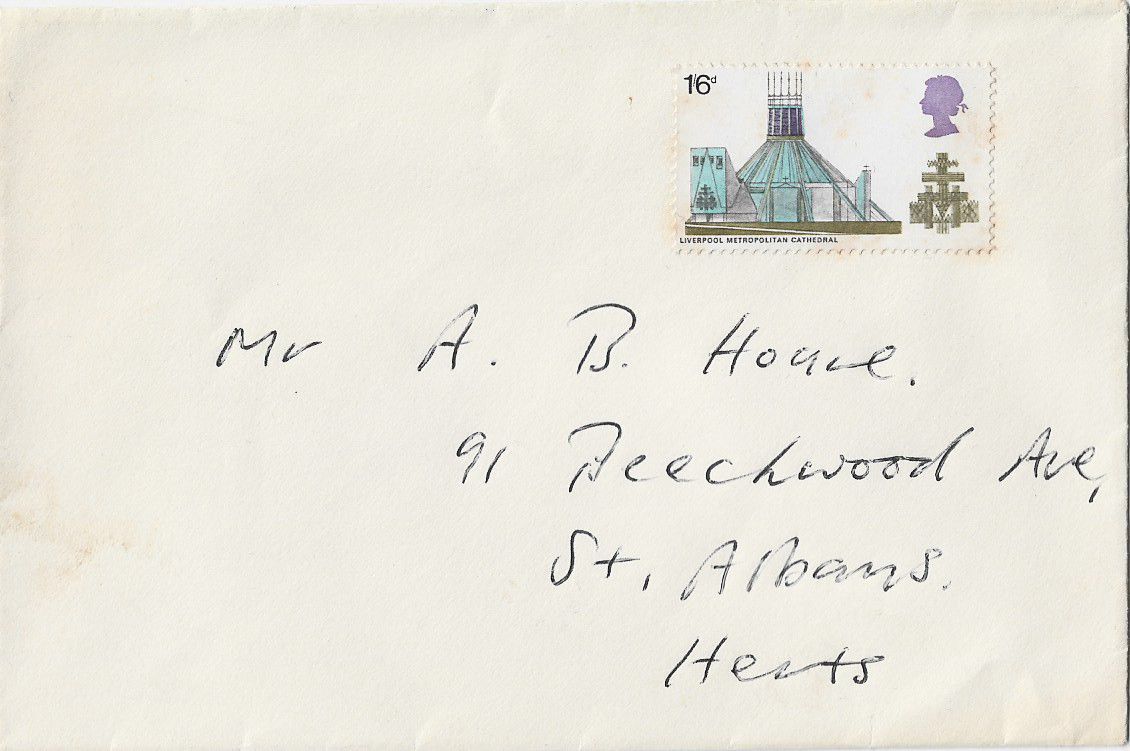 1/6d
LIVERPOOL METROPOLITAN CATHEDRAL
Mr A. B. Hoare.
91 Beechwood Ave,
St. Albans.
Herts